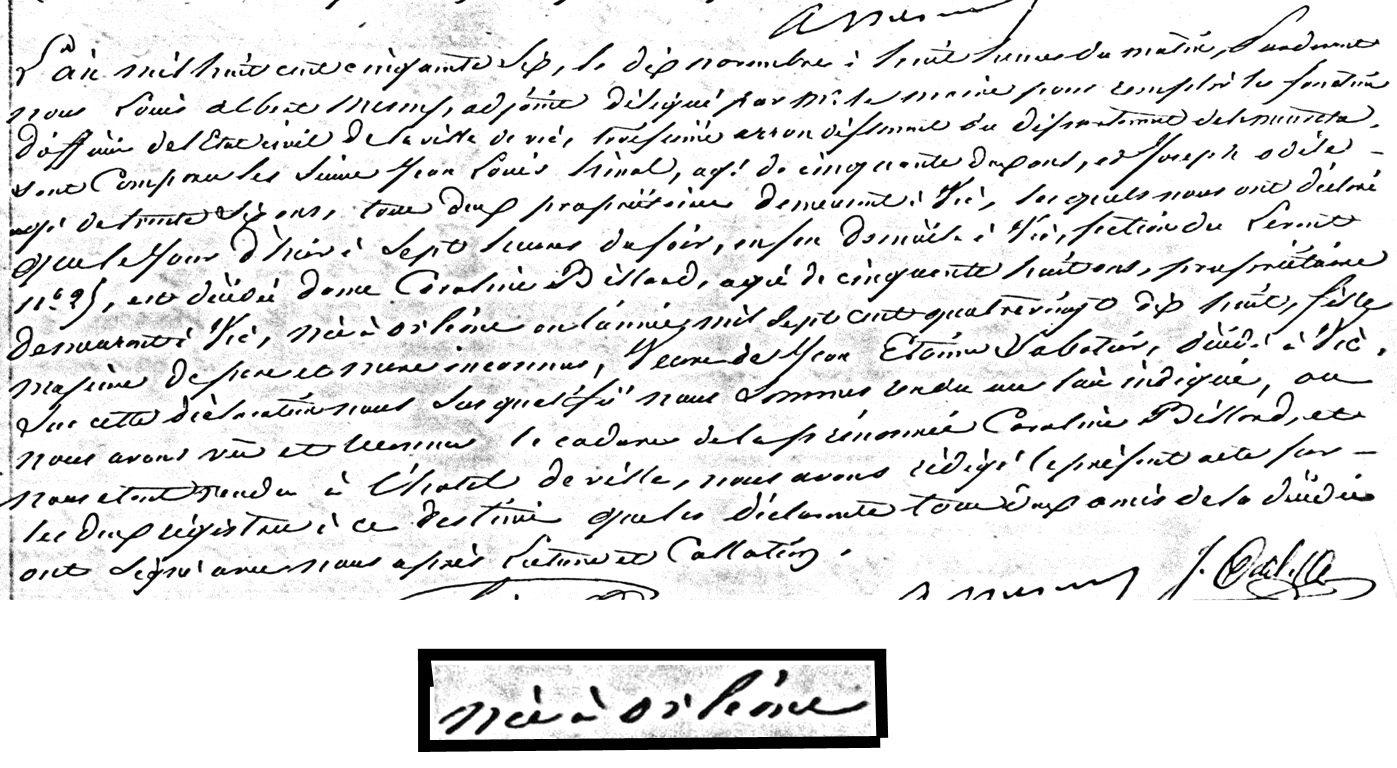 L'an mil huit cent cinquante six, le dix novembre à huit heures du matin, Pardevant
nous Louis Albert Mesmy, adjoint délégué par Mr. le maire pour remplir les fonctions
d'officier de l'Etat civil de la ville de Vic, troisième arrondissement du département de la meurthe,
sont Comparus les Sieurs Jean Louis, agé de cinquante deux ans, et Joseph odile
agé de trente Six ans, tous deux propriétaires demeurant à Vic, lesquels nous ont déclaré
que le Jour d'hier à Sept heures du soir, en son domicile à Vic, section du
n°. 25, est décédée dame Caroline Billard, agée de cinquante huit ans, propriétaire
demeurant à Vic, née à orléans en l'année mil Sept cent quatrevingt dix huit, fille
majeure de père et mère inconnus, Veuve de Jean Etienne Sabatier, décédé à Vic.
Sur cette déclaration nous Susqualifié nous Sommes rendu au lieu indiqué, où
nous avons vu et reconnu le cadavre de la prénommée Caroline Billard, et
nous etant rendu à l'hotel de ville, nous avons rédigé le présent acte sur
les deux régistres à ce destinés que les déclarants tous deux amis de la décédée
ont Signé avec nous après Lecture et Collation.
née à orléans